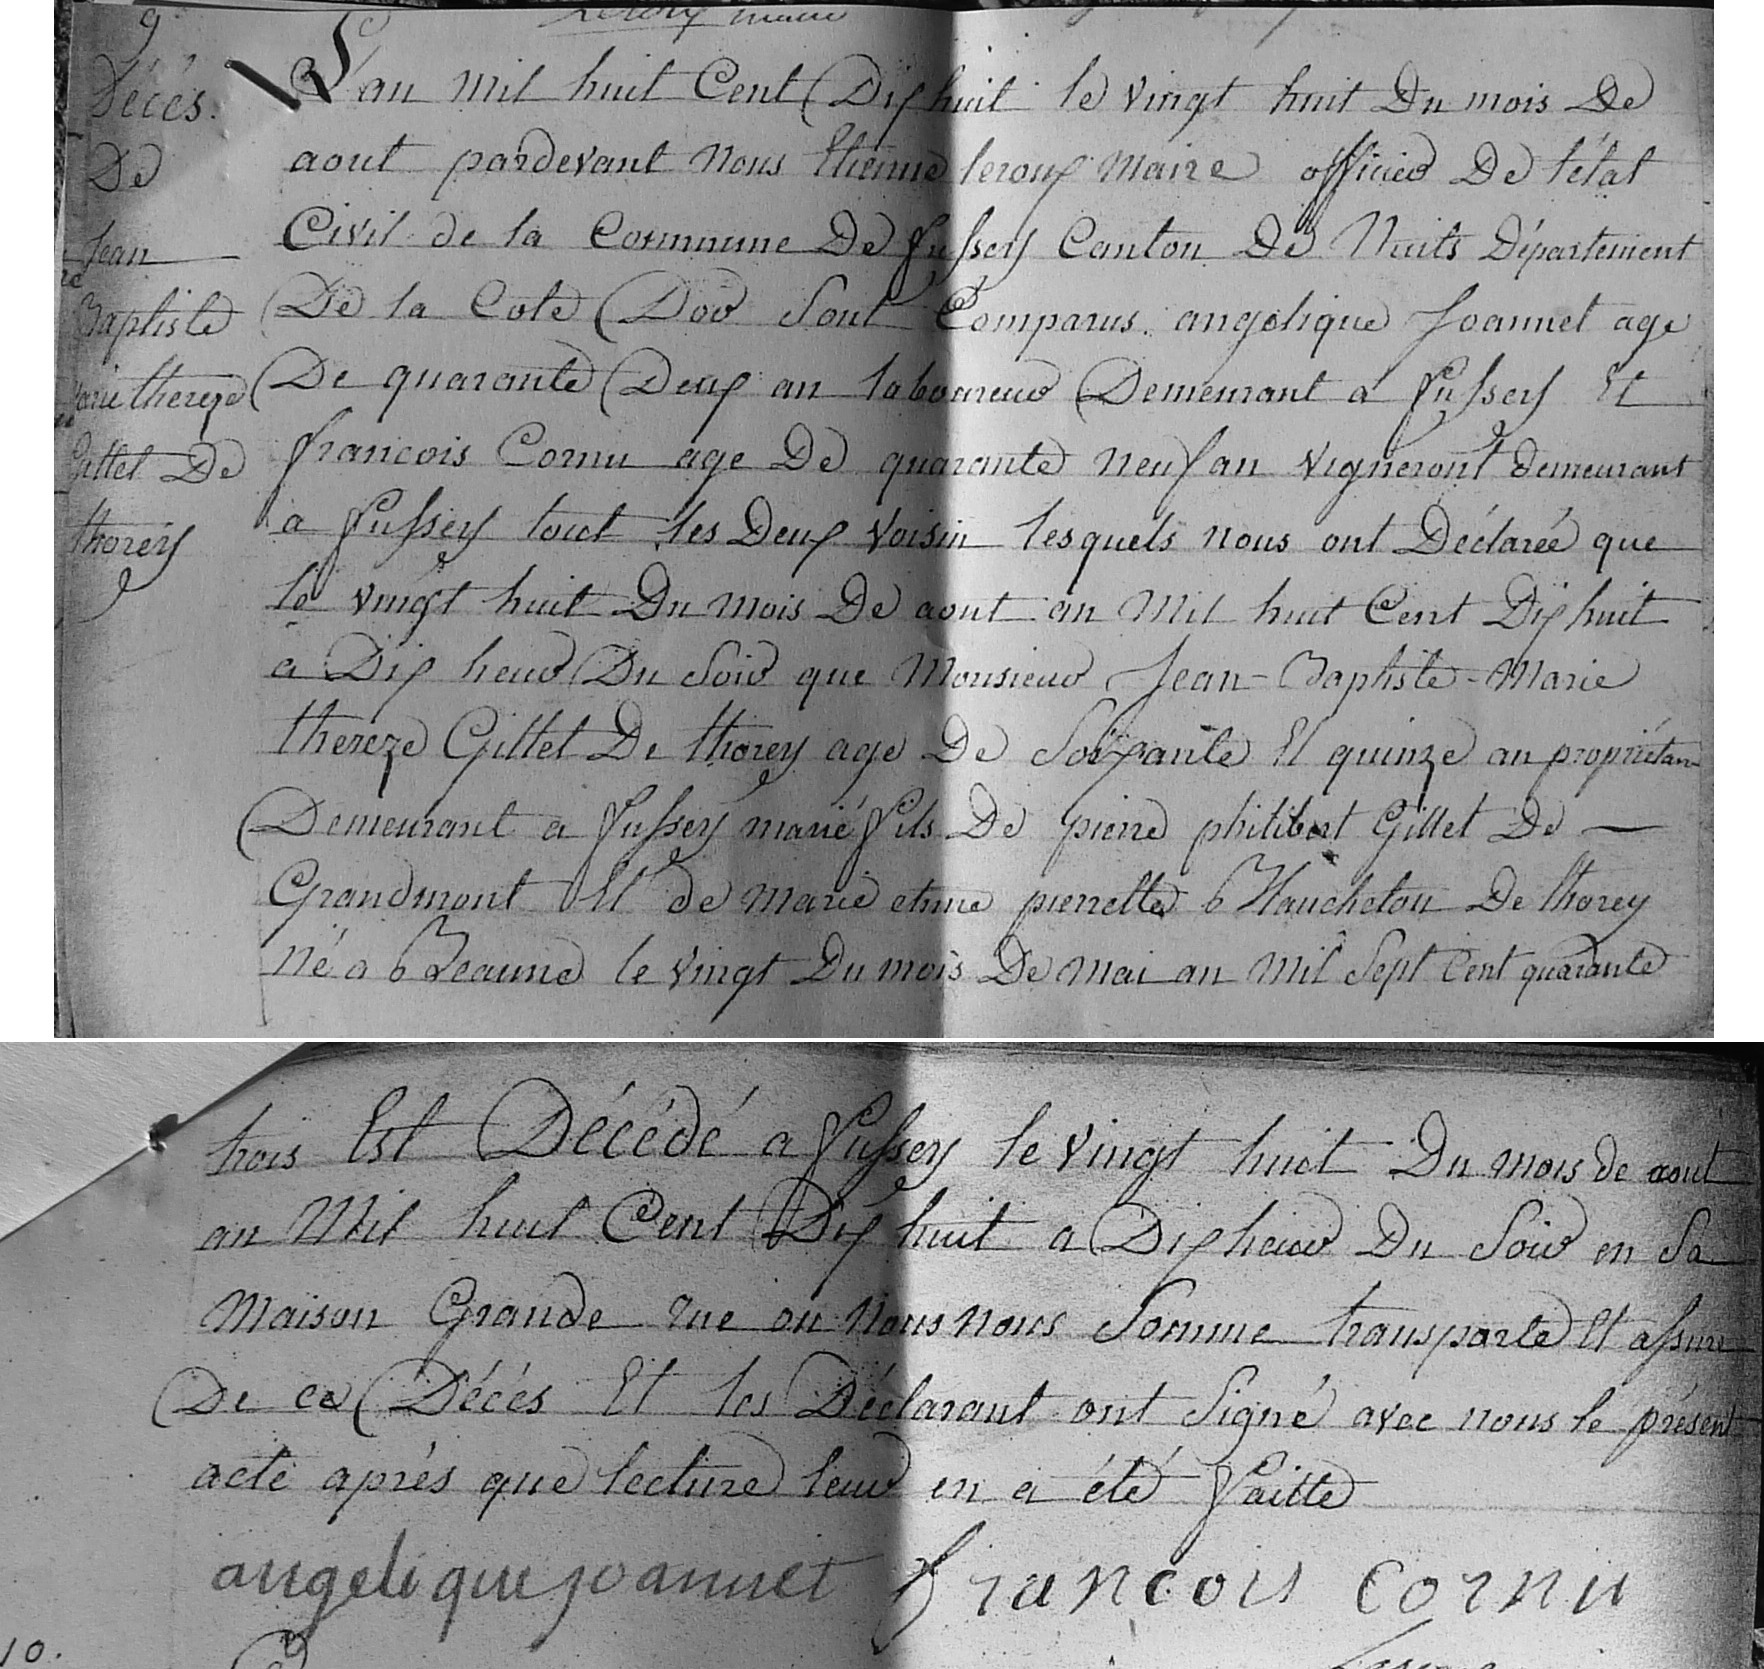 9
Leroux maire
Décès
De
Jean
Baptiste
Marie thereze
Gillet De
thorey
L'an mil huit Cent Dix huit le vingt huit Du mois De
aout pardevant Nous Etienne leroux Maire officier De l'état
Civil de la Commune De fussey Canton De Nuits Département
De la Cote Dor Sont Comparus angelique Joannet age
De quarante Deux an laboureur Demeurant a fussey Et
francois Cornu age De quarante neuf an vigneront demeurant
a fussey tout les Deux voisin lesquels nous ont Déclareé que
le vingt huit Du mois De aout an Mil huit Cent Dix huit
a Dix heur Du Soir que Monsieur Jean-Baptiste-Marie
thereze Gillet De thorey age De Soixante Et quinze an propriétair
Demeurant a fussey marié fils De pierre philibert Gillet De
Grandmont Et de marie etiene pierrette Blancheton De thorey
né a Beaune le vingt Du mois De mai an Mil Sept Cent quarante
trois Est Décédé a fussey le vingt huit Du mois de aout
an Mil huit Cent Dix huit a Dix heur Du Soir en Sa
Maison Grande rue ou Nous nous Somme transporte Et assure
De ce Décès Et les Déclarant ont Signé avec nous le présent
acte après que lecture leur en a été faitte
angelique joannet francois cornu
10.